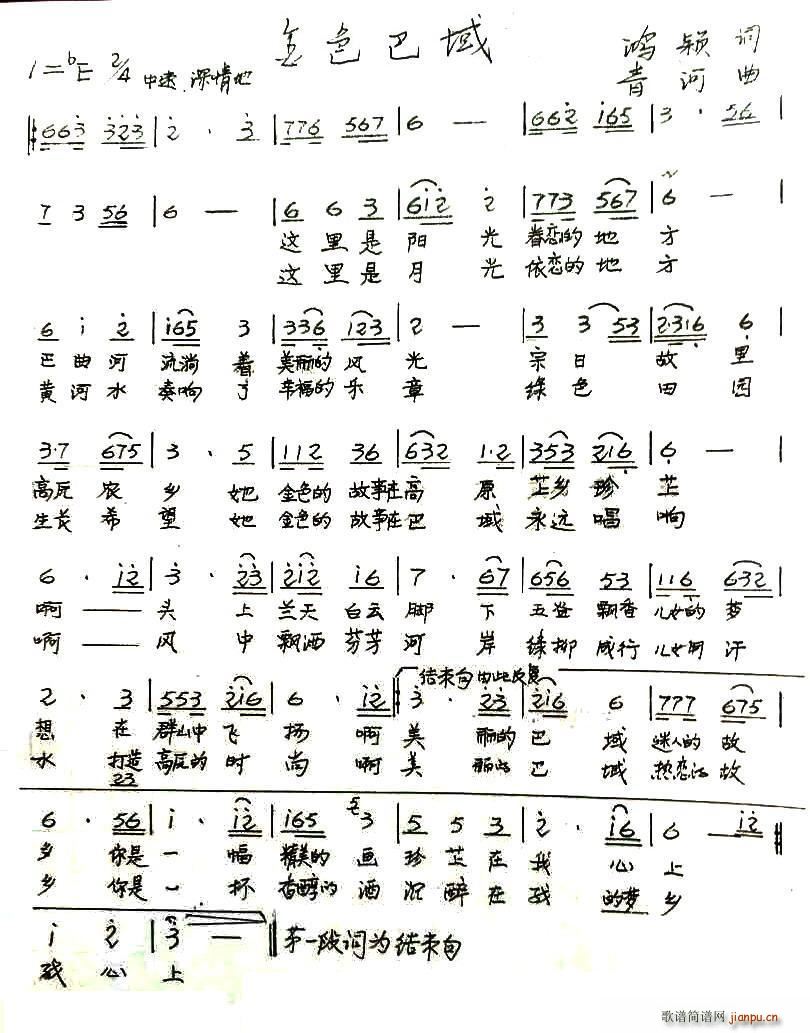 金色巴域
1=♭E 2/4 中速 深情地
鸿颖 词
青河 曲
6 6 3 3 2 3 | 2 · 3 | 7 7 6 5 6 7 | 6 — | 6 6 2 1 6 5 | 3 · 5 6 |
7 3 5 6 | 6 — | 6 6 3 | 6 1 2 2 | 7 7 3 5 6 7 | 6 — |
这里是阳光眷恋的地方
这里是月光依恋的地方
6 1 2 | 1 6 5 3 | 3 3 6 1 2 3 | 2 — | 3 3 5 3 | 2·3 1 6 6 |
巴曲河流淌着美丽的风光 宗日故里
黄河水奏响了幸福的乐章 绿色田园
3·7 6 7 5 | 3 · 5 | 1 1 2 3 6 | 6 3 2 1·2 | 3 5 3 2 1 6 | 6 — |
高瓦农乡 她金色的故事在高原芷乡珍芷
生长希望 她金色的故事在巴域永远唱响
6 · 1 2 | 3 · 2 3 | 2 1 2 1 6 | 7 · 6 7 | 6 5 6 5 3 | 1 1 6 6 3 2 |
啊——头上兰天白云脚下五谷飘香儿女的梦
啊——风中飘洒芬芳河岸绿柳成行儿女用汗
结束句由此反复
2 · 3 | 5 5 3 2 1 6 | 6 · 1 2 | 3 · 2 3 | 2 1 6 6 | 7 7 7 6 7 5 |
想在群山中飞扬 啊美丽的巴域迷人的故
水打造高瓦的时尚 啊美丽的巴域热恋的故
2 3
6 · 5 6 | 1 · 1 2 | 1 6 5 3 | 5 5 3 | 2 · 1 6 | 6 — 1 2
乡 你是一幅精美的画珍芷在我心上
乡 你是一杯香醇的酒沉醉在我的梦乡
1 2 | 3 — 第一段词为结束句
我心上
歌谱简谱网
jianpu.cn